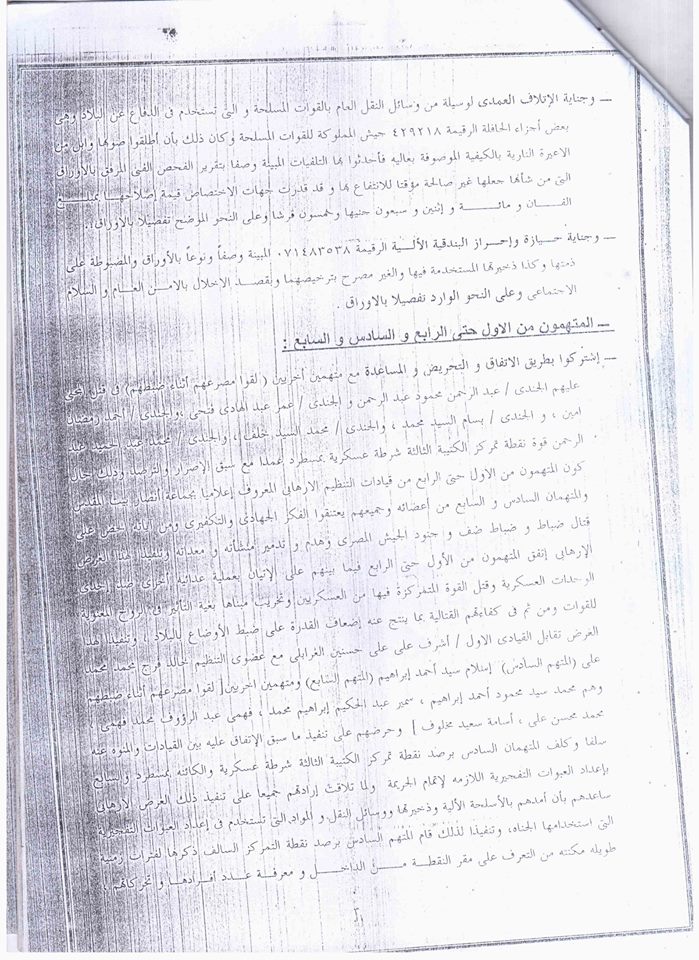 ــ وجناية الإتلاف العمدى لوسيلة من وسائل النقل العام بالقوات المسلحة و التى تستخدم فى الدفاع عن البلاد وهى
بعض أجزاء الحافلة الرقيمة ٤٢٩٢١٨ جيش المملوكة للقوات المسلحة وكان ذلك بأن أطلقوا صوبها وابل من
الاعيرة النارية بالكيفية الموصوفة بعاليه فأحدثوا بها التلفيات المبينة وصفا بتقرير الفحص الفنى المرفق بالاوراق
التى من شأنها جعلها غير صالحة مؤقتا للانتفاع بها و قد قدرت جهات الاختصاص قيمة إصلاحها بمبلــغ
الفــان و مائــــة و إثنين و سبعون جنيها وخمسون قرشا وعلى النحو الموضح تفصيلا بالاوراق.
ــ وجناية حيــازة وإحراز البندقية الألــية الرقيمة ٠٧١٤٨٣٥٣٨ المبينة وصفاً ونوعاً بالأوراق والمضبوطة على
ذمتها وكذا ذخيرتها المستخدمة فيها والغير مصرح بترخيصهما وبقصد الاخلال بالامن العام و السلام
الاجتماعى وعلى النحو الوارد تفصيلا بالاوراق .
ــ المتهمون من الاول حتى الرابع و السادس و السابع :
ــ إشتركوا بطريق الاتفاق و التحريض و المساعدة مع متهمين أخريين ( لقوا مصرعهم أثناء ضبطهم) فى قتل المجنى
عليهم الجندى / عبد الرحمن محمود عبد الرحمن و الجندى / عمر عبد الهادى فتحى ،والجندى / أحمد رمضان
امين ، و الجندى / بسام السيد محمد ، والجندى / محمد السيد خلف ، والجندى / محمد عبد الحميد عبد
الرحمن قوة نقطة تمركز الكتيبة الثالثة شرطة عسكرية بمسطرد عمدا مع سبق الإصرار والترصد وذلك حال
كون المتهمون من الاول حتى الرابع من قيادات التنظيم الارهابى المعروف إعلاميا بجماعة أنصار بيت المقدس
والمتهمان السادس و السابع من أعضائه وجميعهم يعتنقوا الفكر الجهادى والتكفيرى ومن أياته الحض على
قتال ضباط و ضباط صف و جنود الجيش المصرى وهدم و تدمير منشأته و معداته وتنفيذ لهذا الغرض
الإرهابى إتفق المتهمون من الأول حتى الرابع فيما بينهم على الإتيان بعملية عدائية أخرى ضد إحدى
الوحدات العسكرية وقتل القوة المتمركزة فيها من العسكريين وتخريب مبناها بغية التأثير فى الروح المعنوية
للقوات ومن ثم فى كفاءتهم القتالية بما ينتج عنه إضعاف القدرة على ضبط الأوضاع بالبلاد ، وتنفيذا لهذا
الغرض تقابل القيادى الاول / أشرف على على حسنين الغرابلى مع عضوى التنظيم خالد فرج محمد محمد
على (المتهم السادس) إسلام سيد أحمد إبراهيم (المتهم السابع) ومتهمين أخريين[ لقوا مصرعهم أثناء ضبطهم
وهم محمد سيد محمود أحمد إبراهيم ، سمير عبد الحكيم إبراهيم محمد ، فهمى عبد الرؤوف محمد فهمى ،
محمد محسن على ، أسامة سعيد مخلوف ] وحرضهم على تنفيذ ما سبق الإتفاق عليه بين القيادات والمنوه عنه
سلفا وكلف المتهمان السادس برصد نقطة تمركز الكتيبة الثالثة شرطة عسكرية والكائنه بمسطرد والسابع
بإعداد العبوات التفجيرية اللازمه لإتمام الجريمة ولما تلاقت إرادتهم جميعا على تنفيذ ذلك الغرض الإرهابى
ساعدهم بأن أمدهم بالأسلحة الألية وذخيرتها ووسائل النقل و المواد التى تستخدم فى إعداد العبوات التفجيرية
التى استخدامها الجناه، وتنفيذا لذلك قام المتهم السادس برصد نقطة التمركز السالف ذكرها لفترات زمنية
طويله مكنته من التعرف على مقر النقطــة مــن الداخــل و معرفة عدد أفرادهــا و تحركاتهم ،